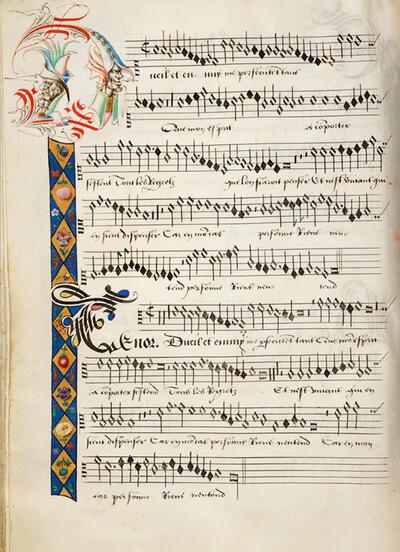 Dueil et ennuy me persecutent tant
Que mon esprit a comporter
sestent Tous les Regretz que lon scaroit penser Et nest vivant qui
en sceut dispenser Car en mon cas personne Riens nen
tend personne Riens nen tend
Tenor. Dueil et ennuy me persecutent tant Que mon esprit
a comporter sestend Tous les Regretz Et nest vivant qui en
sceut dispenser Car en mon cas personne Riens nentend Car en mon
cas personne Riens nentend